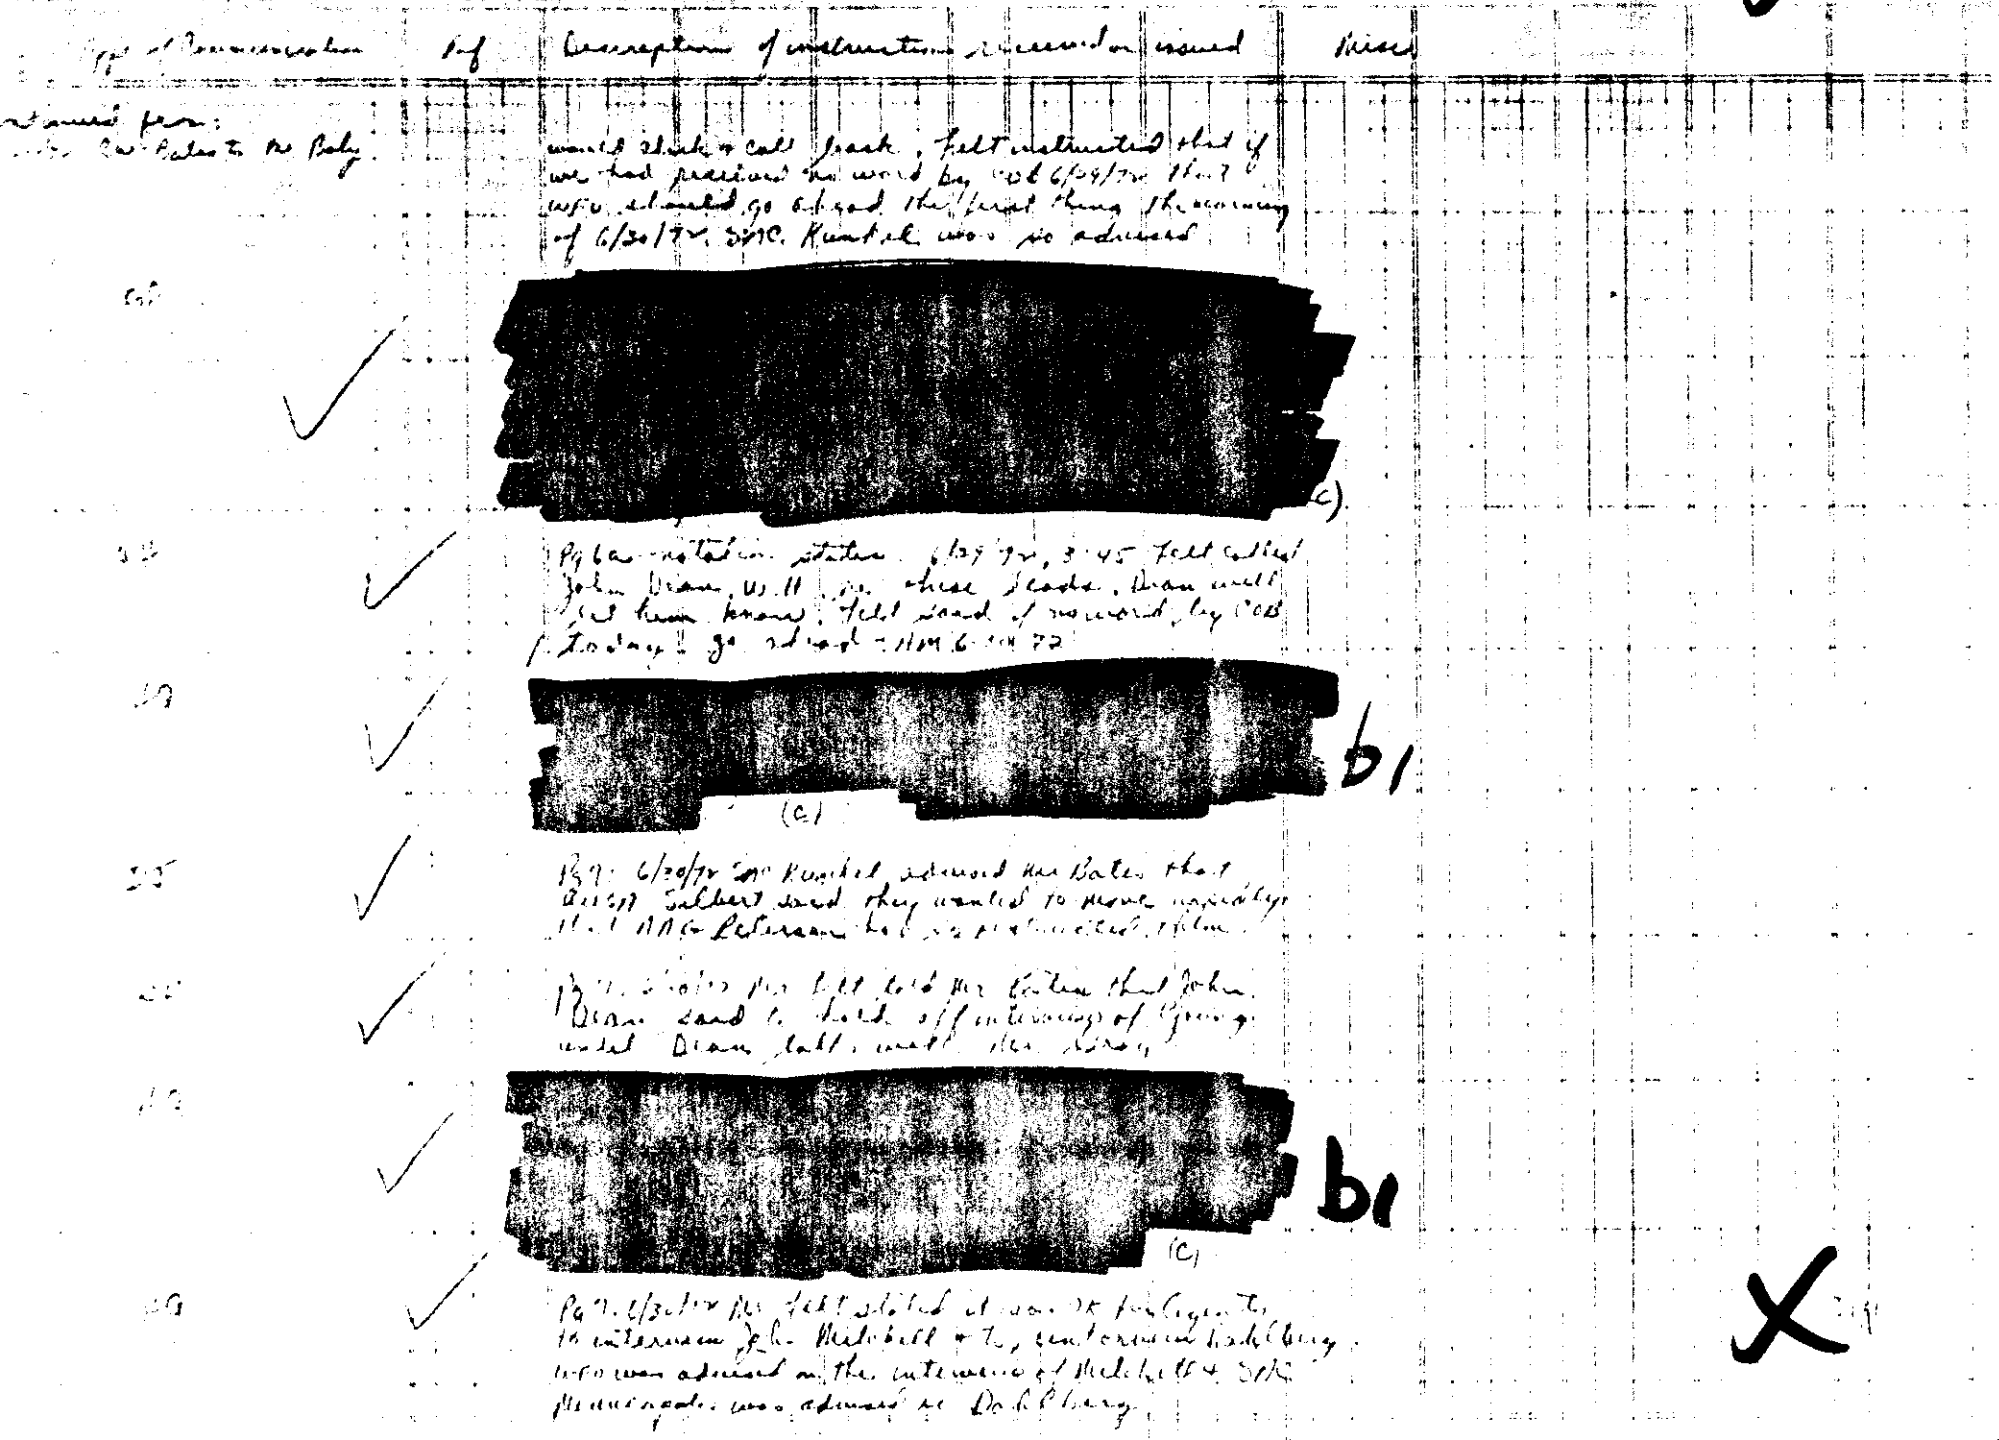 Type of Communication Ref Description of instructions received or issued Misc
Continued from:
Bates to Mr Baley
would check & call back. Felt instructed that if
we had received no word by COB 6/29/72 that
WFO should go ahead the first thing the morning
of 6/30/72. SAC Kunkel was so advised
(c)
Pg 6a notation states 6/29/72, 3:45 Felt called
John Dean, W.H. re these leads. Dean will
let him know. Felt said if no word by COB
today go ahead - HM 6 72
b1
(c)
Pg 7: 6/30/72 SAC Kunkel advised Mr Bates that
AUSA Silbert said they wanted to move rapidly
that AAG Petersen had so instructed them
Pg 7. Mr Felt told Mr Bates that John
Dean said to hold off interviews of Young
until Dean talks with Mr Gray
b1
(c)
Pg 7. 6/30/72 Mr Felt stated it was OK for Agents
to interview John Mitchell & to interview Dahlberg.
WFO was advised on the interview of Mitchell & SAC
Minneapolis was advised re Dahlberg
X